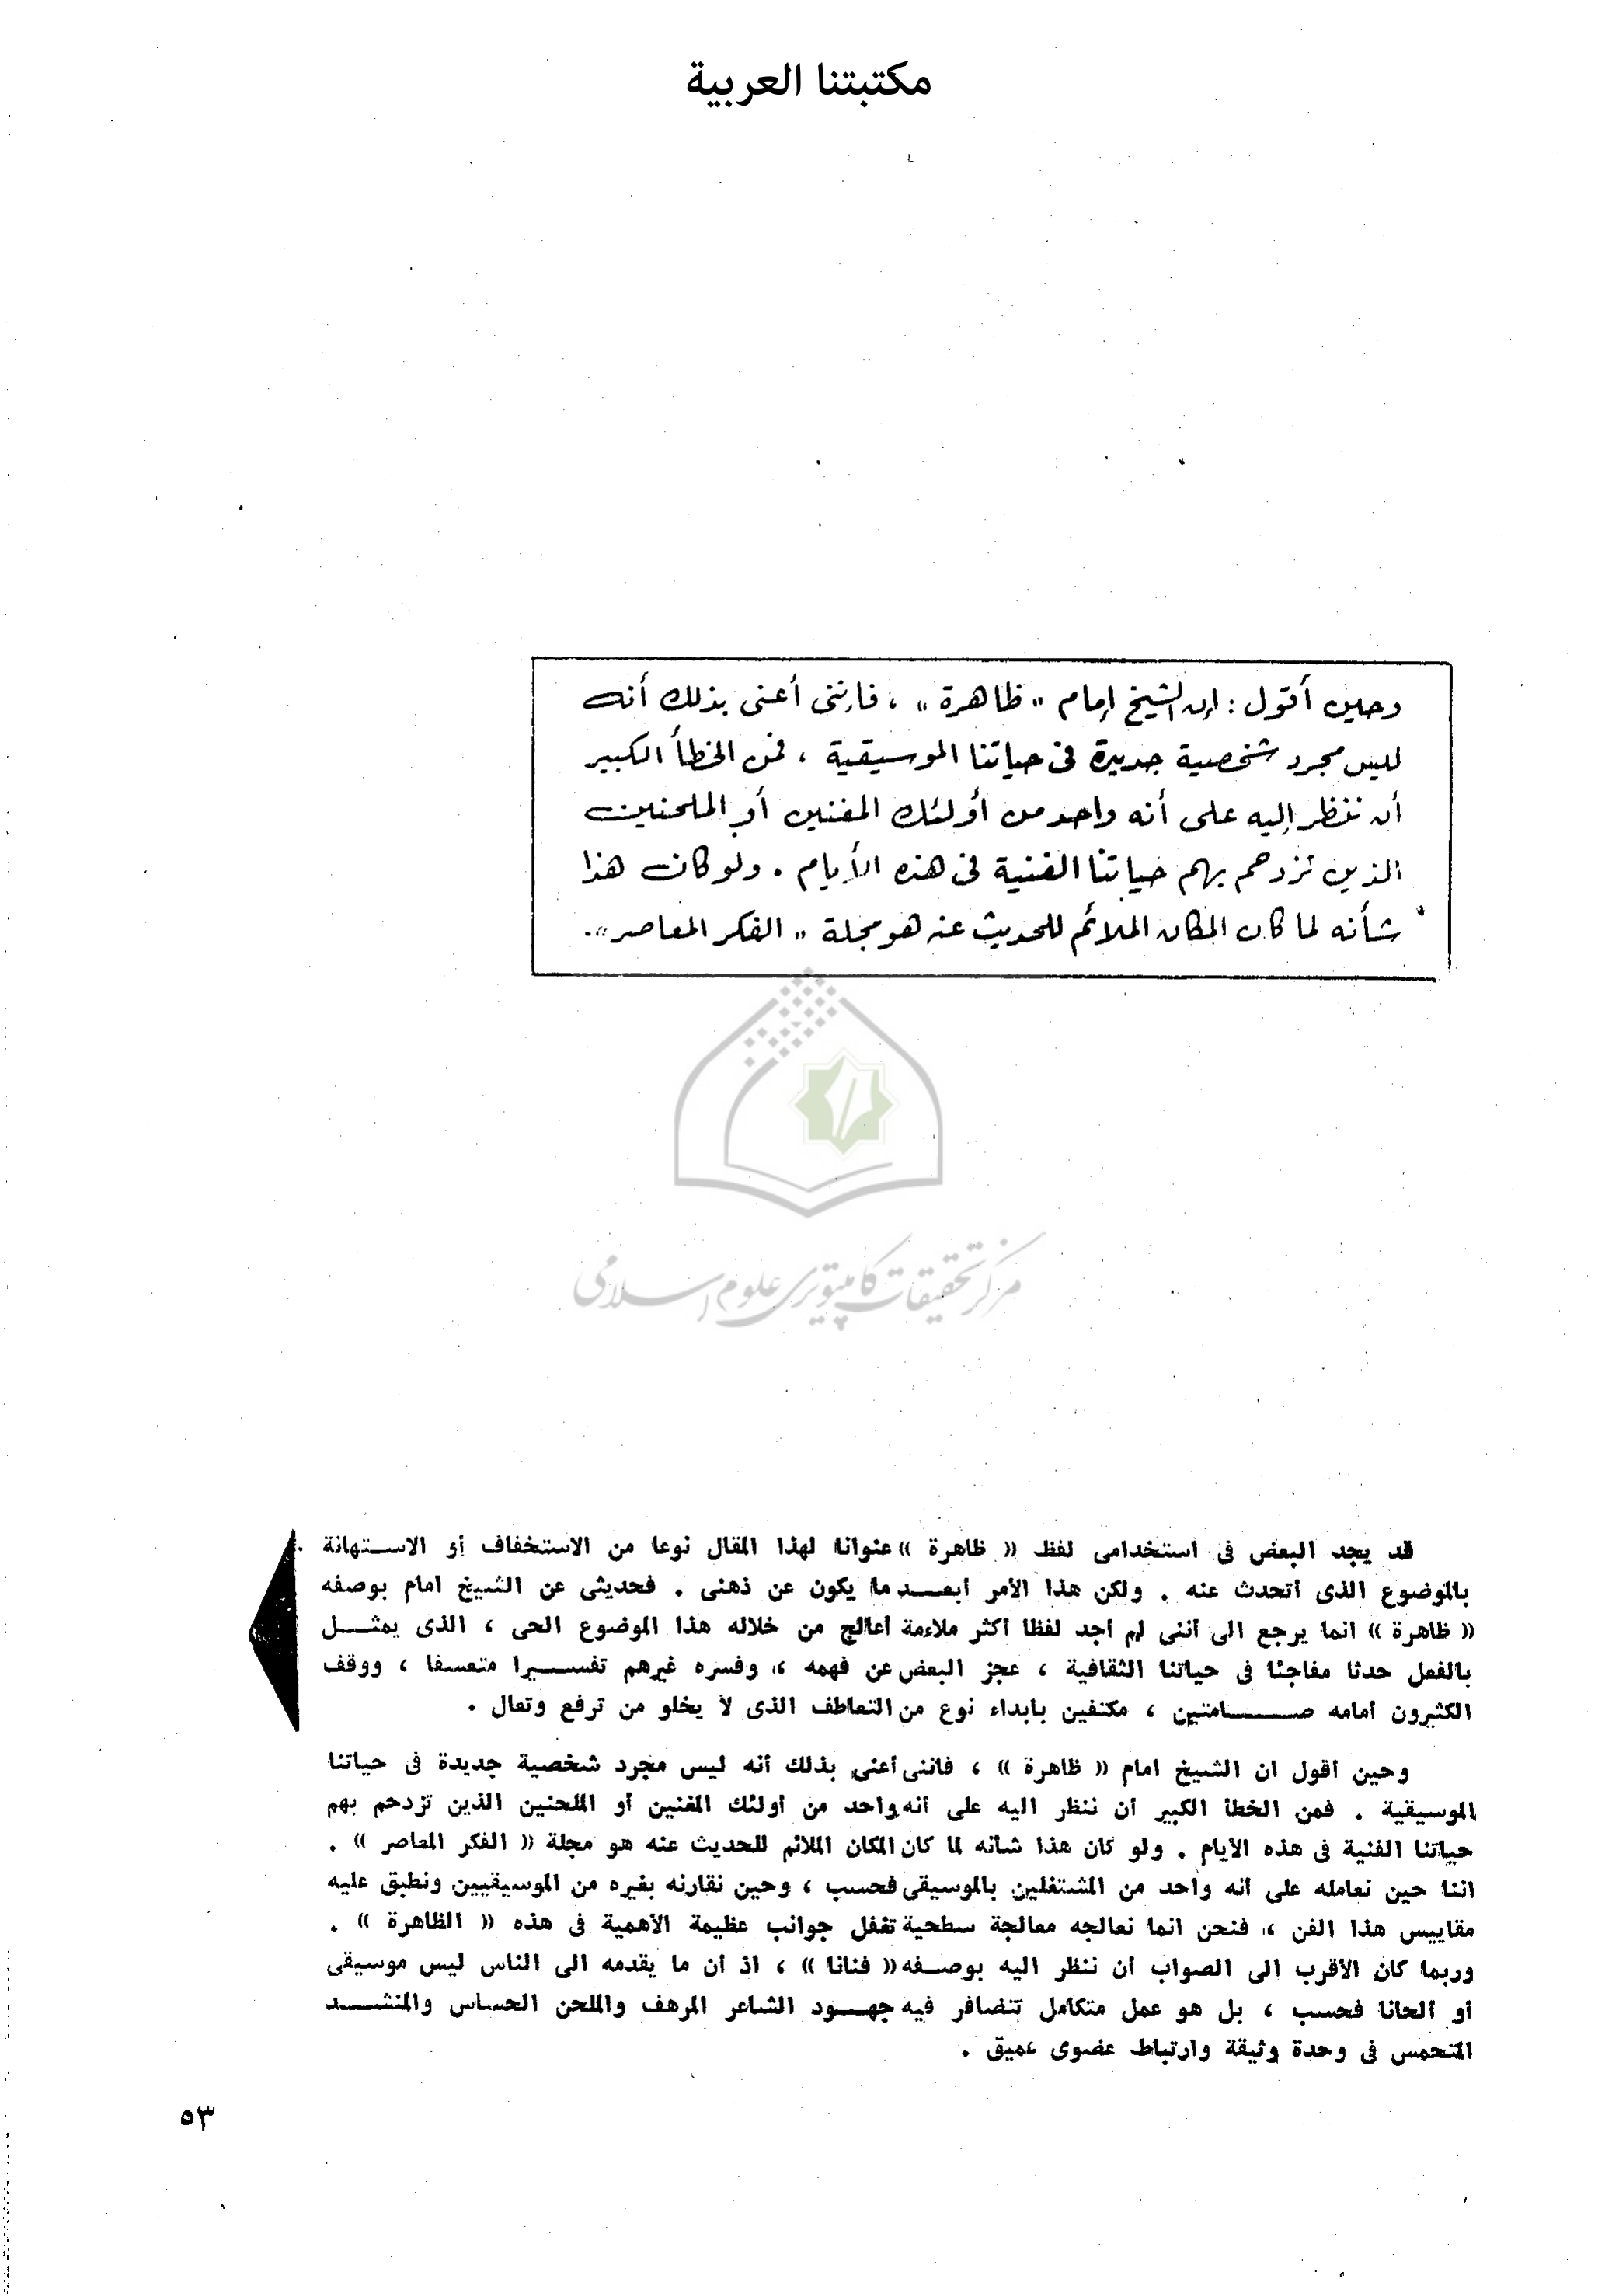 مكتبتنا العربية
وحين أقول : إن الشيخ إمام " ظاهرة " ، فإننى أعنى بذلك أنه
ليس مجرد شخصية جديدة فى حياتنا الموسيقية ، فمن الخطأ الكبير
أن ننظر إليه على أنه واحد من أولئك المغنين أو الملحنين
الذين تزدحم بهم حياتنا الفنية فى هذه الأيام . ولو كان هذا
شأنه لما كان المكان الملائم للحديث عنه هو مجلة " الفكر المعاصر " .
مركز تحقيقات كامپيوتری علوم اسلامی
قد يجد البعض فى استخدامى لفظ « ظاهرة » عنوانا لهذا المقال نوعا من الاستخفاف أو الاستهانة
بالموضوع الذى اتحدث عنه . ولكن هذا الأمر أبعد ما يكون عن ذهنى . فحديثى عن الشيخ امام بوصفه
« ظاهرة » انما يرجع الى أننى لم أجد لفظا أكثر ملاءمة أعالج من خلاله هذا الموضوع الحى ، الذى يمثل
بالفعل حدثا مفاجئا فى حياتنا الثقافية ، عجز البعض عن فهمه ، وفسره غيرهم تفسيرا متعسفا ، ووقف
الكثيرون أمامه صامتين ، مكتفين بابداء نوع من التعاطف الذى لا يخلو من ترفع وتعال .
وحين أقول ان الشيخ امام « ظاهرة » ، فاننى أعنى بذلك أنه ليس مجرد شخصية جديدة فى حياتنا
الموسيقية . فمن الخطأ الكبير أن ننظر اليه على أنه واحد من أولئك المغنين أو الملحنين الذين تزدحم بهم
حياتنا الفنية فى هذه الأيام . ولو كان هذا شأنه لما كان المكان الملائم للحديث عنه هو مجلة « الفكر المعاصر » .
اننا حين نعامله على أنه واحد من المشتغلين بالموسيقى فحسب ، وحين نقارنه بغيره من الموسيقيين ونطبق عليه
مقاييس هذا الفن ، فنحن انما نعالجه معالجة سطحية تغفل جوانب عظيمة الأهمية فى هذه « الظاهرة » .
وربما كان الأقرب الى الصواب أن ننظر اليه بوصفه « فنانا » ، اذ أن ما يقدمه الى الناس ليس موسيقى
أو ألحانا فحسب ، بل هو عمل متكامل تتضافر فيه جهود الشاعر المرهف والملحن الحساس والمنشد
المتحمس فى وحدة وثيقة وارتباط عضوى عميق .
٥٣